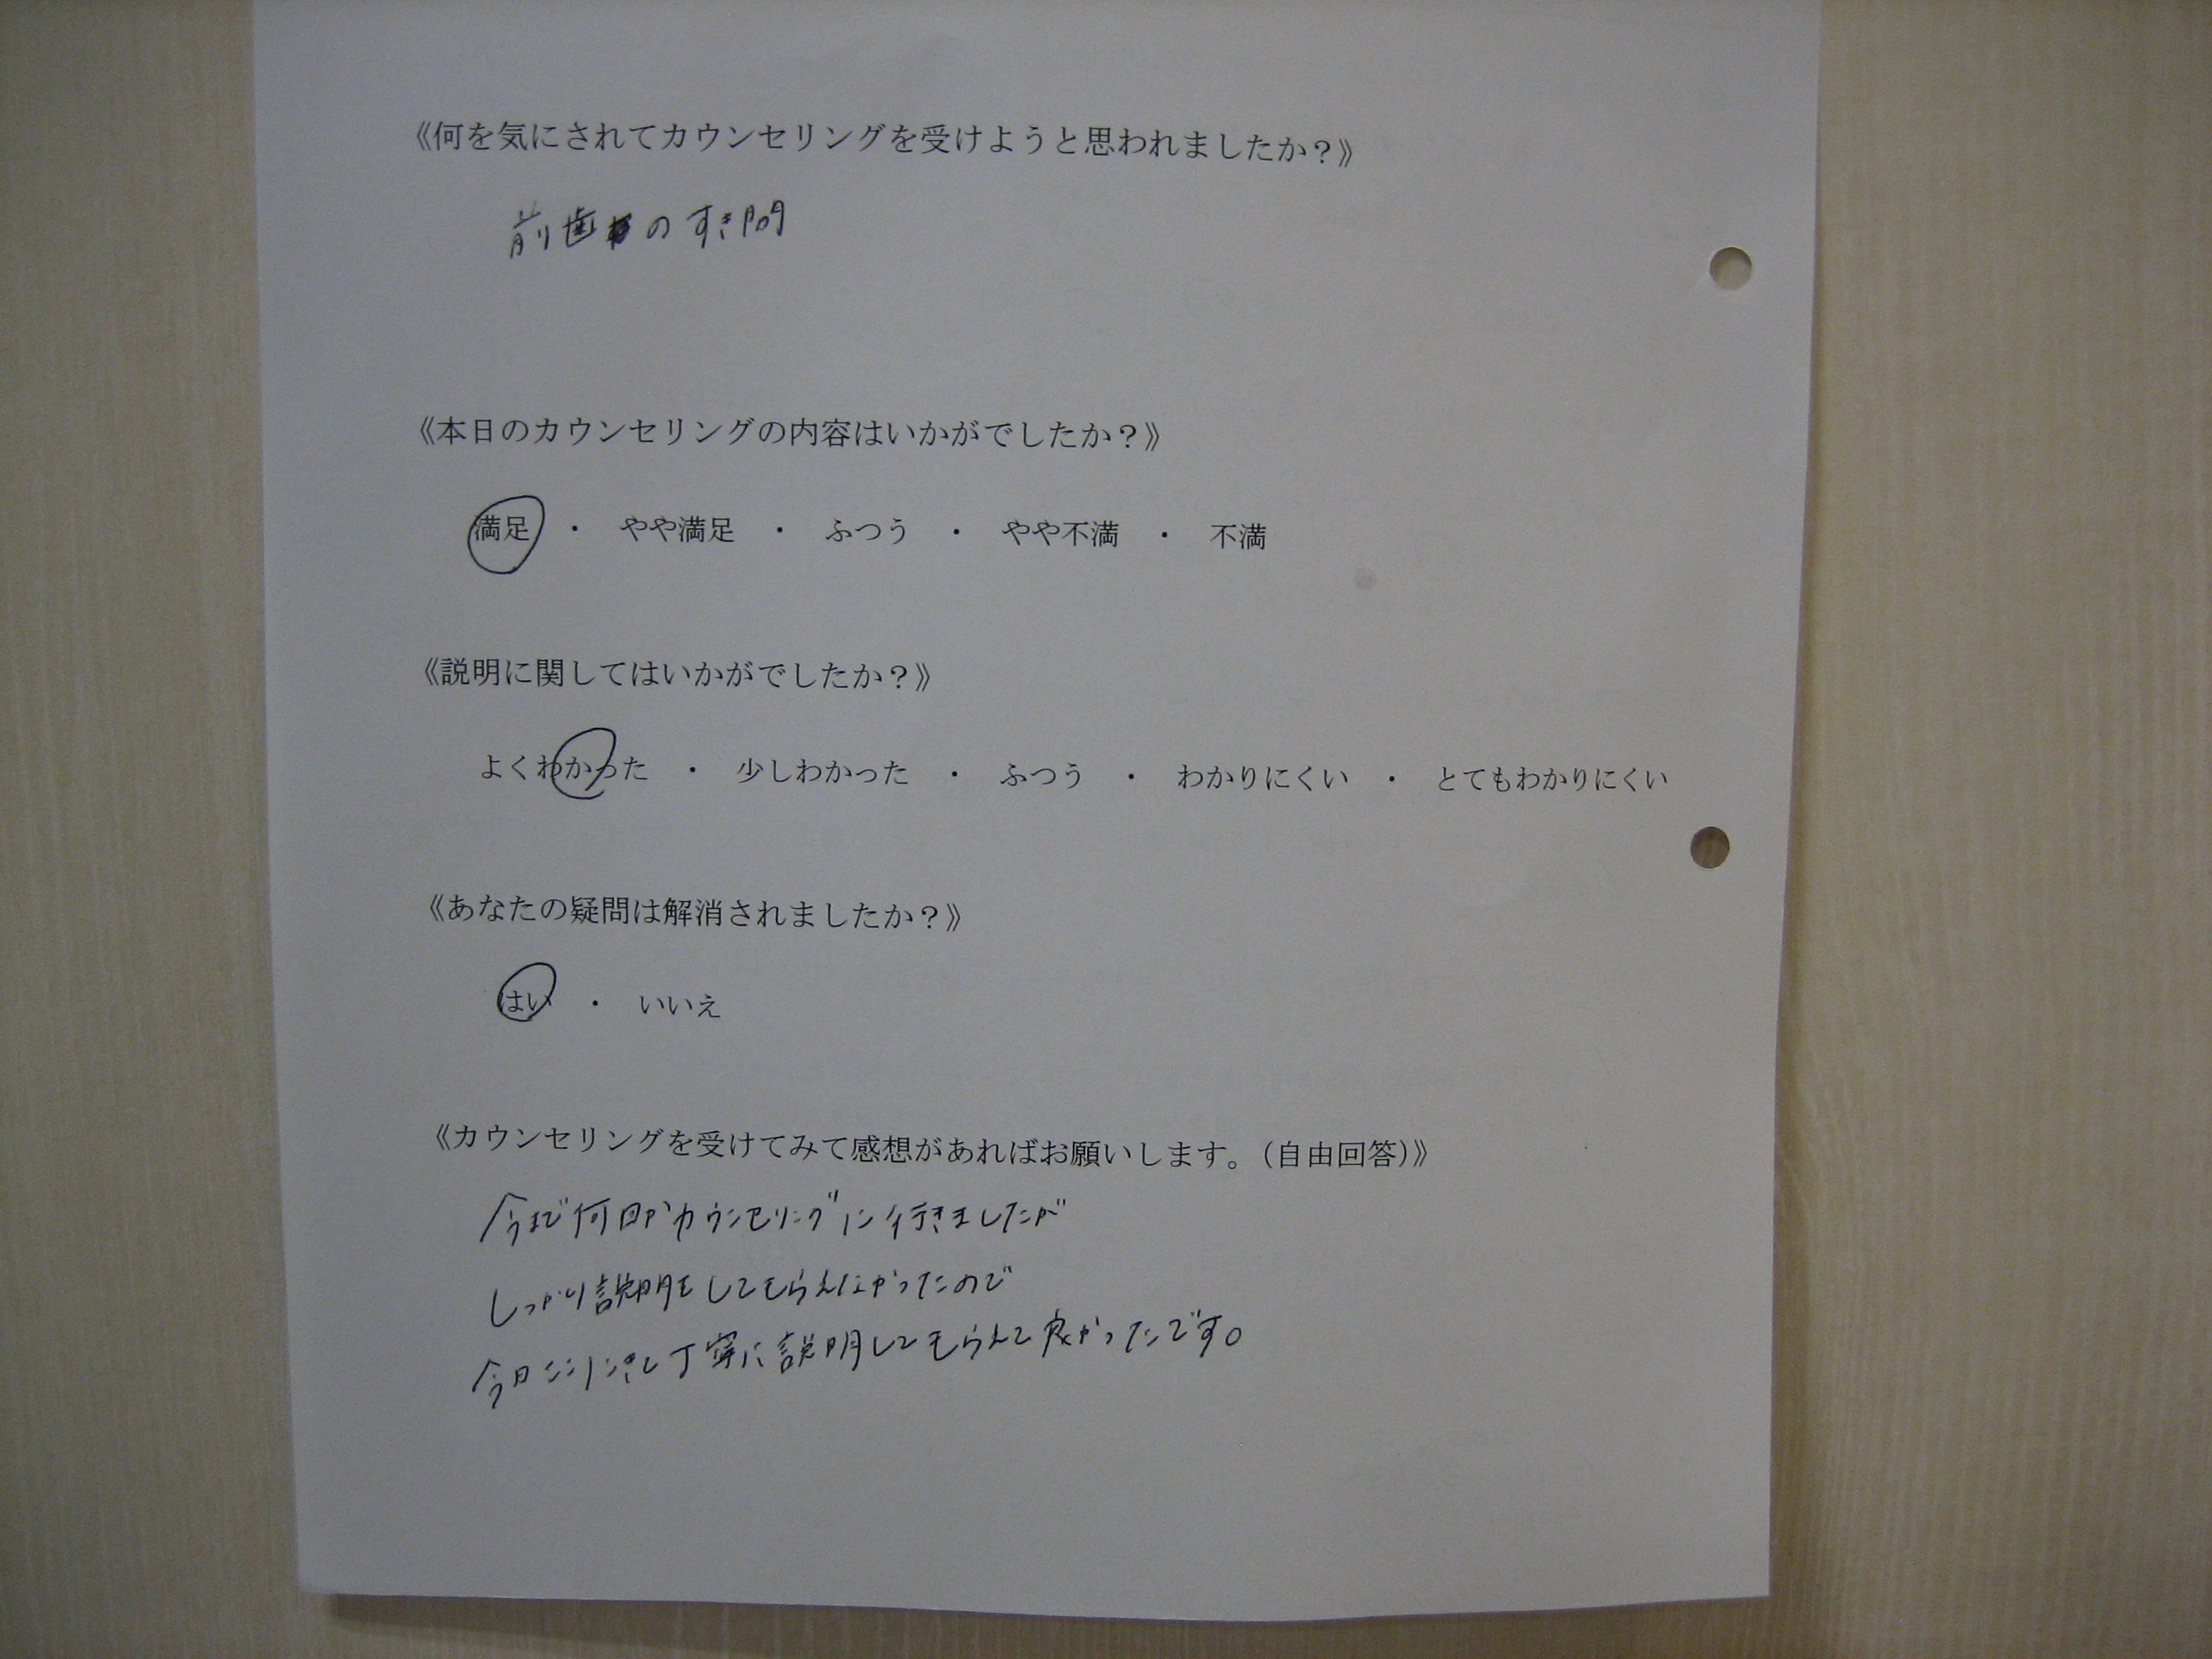 《何を気にされてカウンセリングを受けようと思われましたか？》
前歯のすき間
《本日のカウンセリングの内容はいかがでしたか？》
満足 ・ やや満足 ・ ふつう ・ やや不満 ・ 不満
《説明に関してはいかがでしたか？》
よくわかった ・ 少しわかった ・ ふつう ・ わかりにくい ・ とてもわかりにくい
《あなたの疑問は解消されましたか？》
はい ・ いいえ
《カウンセリングを受けてみて感想があればお願いします。（自由回答）》
今まで何回かカウンセリングに行きましたが
しっかり説明をしてもらえなかったので
今日ここにきて丁寧に説明してもらえて良かったです。